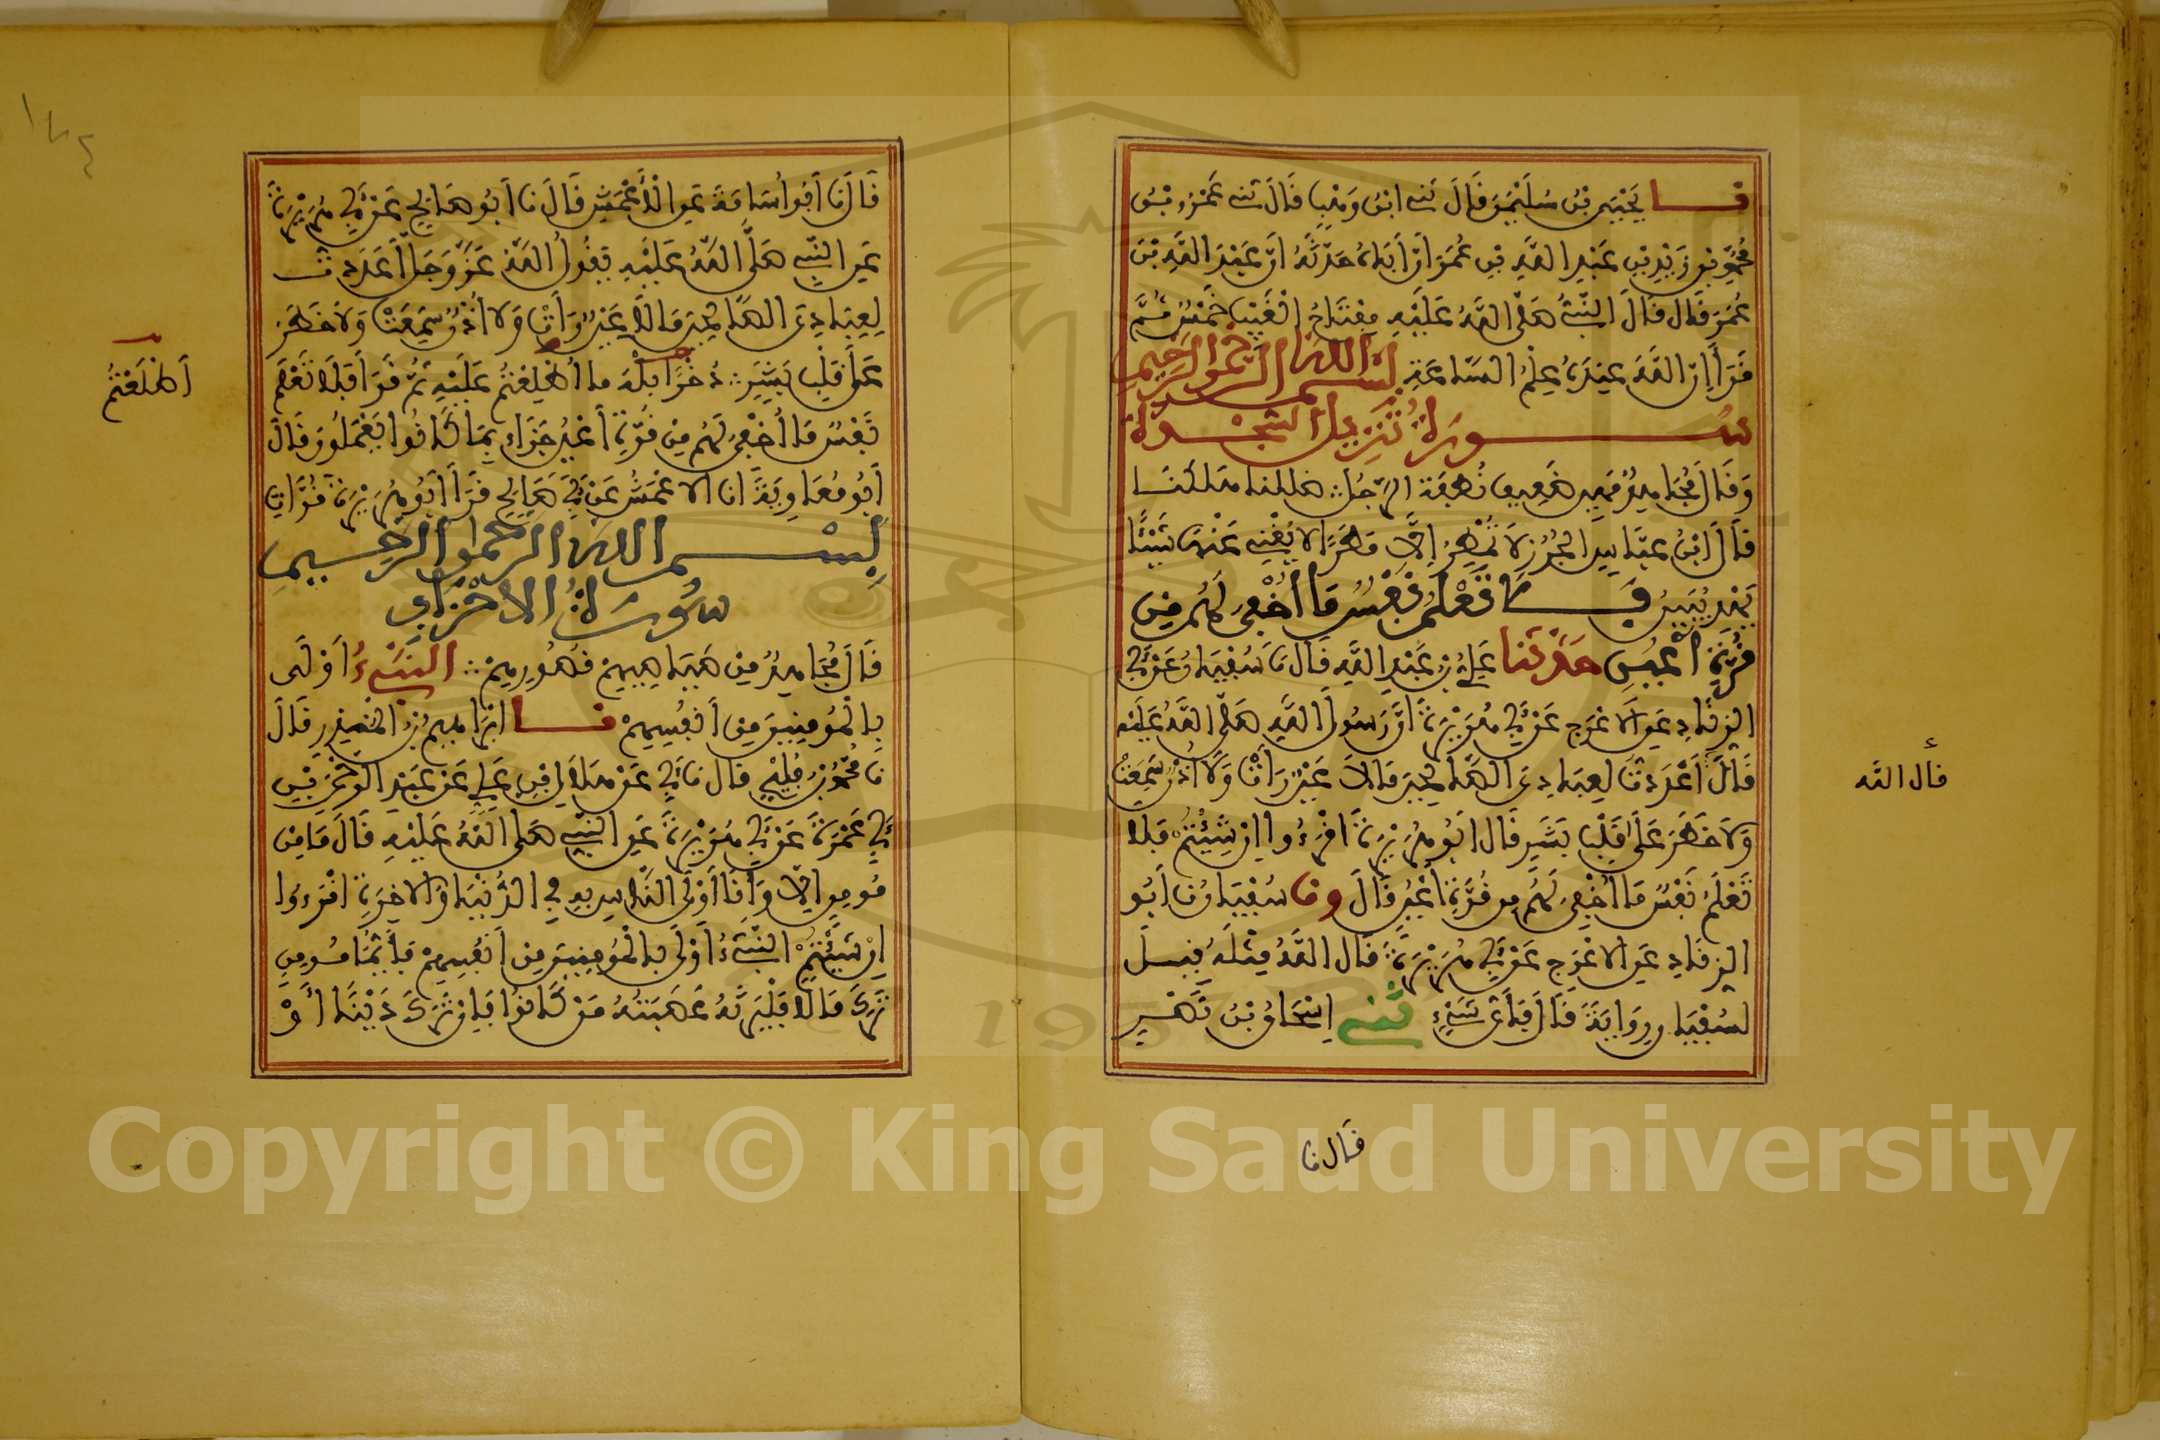 نا يحيى بن سليمن قال ثني ابن وهب قال ثني عمر بن
محمد بن زيد بن عبد الله بن عمر أن أباه حدثه أن عبد الله بن
عمر قال قال النبي صلى الله عليه مفتاح الغيب خمس ثم
قرأ إن الله عنده علم الساعة بسم الله الرحمن الرحيم
سورة تنزيل السجدة
وقال مجاهد مهين ضعيف نطفة الرجل ضللنا هلكنا
قال ابن عباس الجرز لا تمطر إلا مطرا لا يغني عنها شيئا
يهد يبين فلا تعلم نفس ما أخفي لهم من
قرة أعين حدثنا علي بن عبد الله قال نا سفيان عن أبي
الزناد عن الأعرج عن أبي هريرة أن رسول الله صلى الله عليه
قال أعددت لعبادي الصالحين ما لا عين رأت ولا أذن سمعت
ولا خطر على قلب بشر قال أبو هريرة اقرءوا إن شئتم فلا
تعلم نفس ما أخفي لهم من قرة أعين قال ونا سفيان نا أبو
الزناد عن الأعرج عن أبي هريرة قال الله مثله قيل
لسفيان رواية قال فأي شيء ثني إسحاق بن نصر
قال الله
قال نا
قال نا أبو أسامة عن الأعمش قال نا أبو صالح عن أبي هريرة
عن النبي صلى الله عليه يقول الله عز وجل أعددت
لعبادي الصالحين ما لا عين رأت ولا أذن سمعت ولا خطر
على قلب بشر ذخرا بله ما أطلعتم عليه ثم قرأ فلا تعلم
نفس ما أخفي لهم من قرة أعين جزاء بما كانوا يعملون قال
أبو معاوية نا الأعمش عن أبي صالح قرأ أبو هريرة قرات
بسم الله الرحمن الرحيم
سورة الأحزاب
قال مجاهد من صياصيهم قصورهم النبيء أولى
بالمؤمنين من أنفسهم نا إبراهيم بن المنذر قال
نا محمد بن فليح قال نا أبي عن هلال بن علي عن عبد الرحمن بن
أبي عمرة عن أبي هريرة عن النبي صلى الله عليه قال ما من
مومن إلا وأنا أولى الناس به في الدنيا والآخرة اقرءوا
إن شئتم النبيء أولى بالمؤمنين من أنفسهم فأيما مومن
ترك مالا فليرثه عصبته من كانوا فإن ترك دينا أو
أطلعتم
١٨٤
Copyright © King Saud University
1957